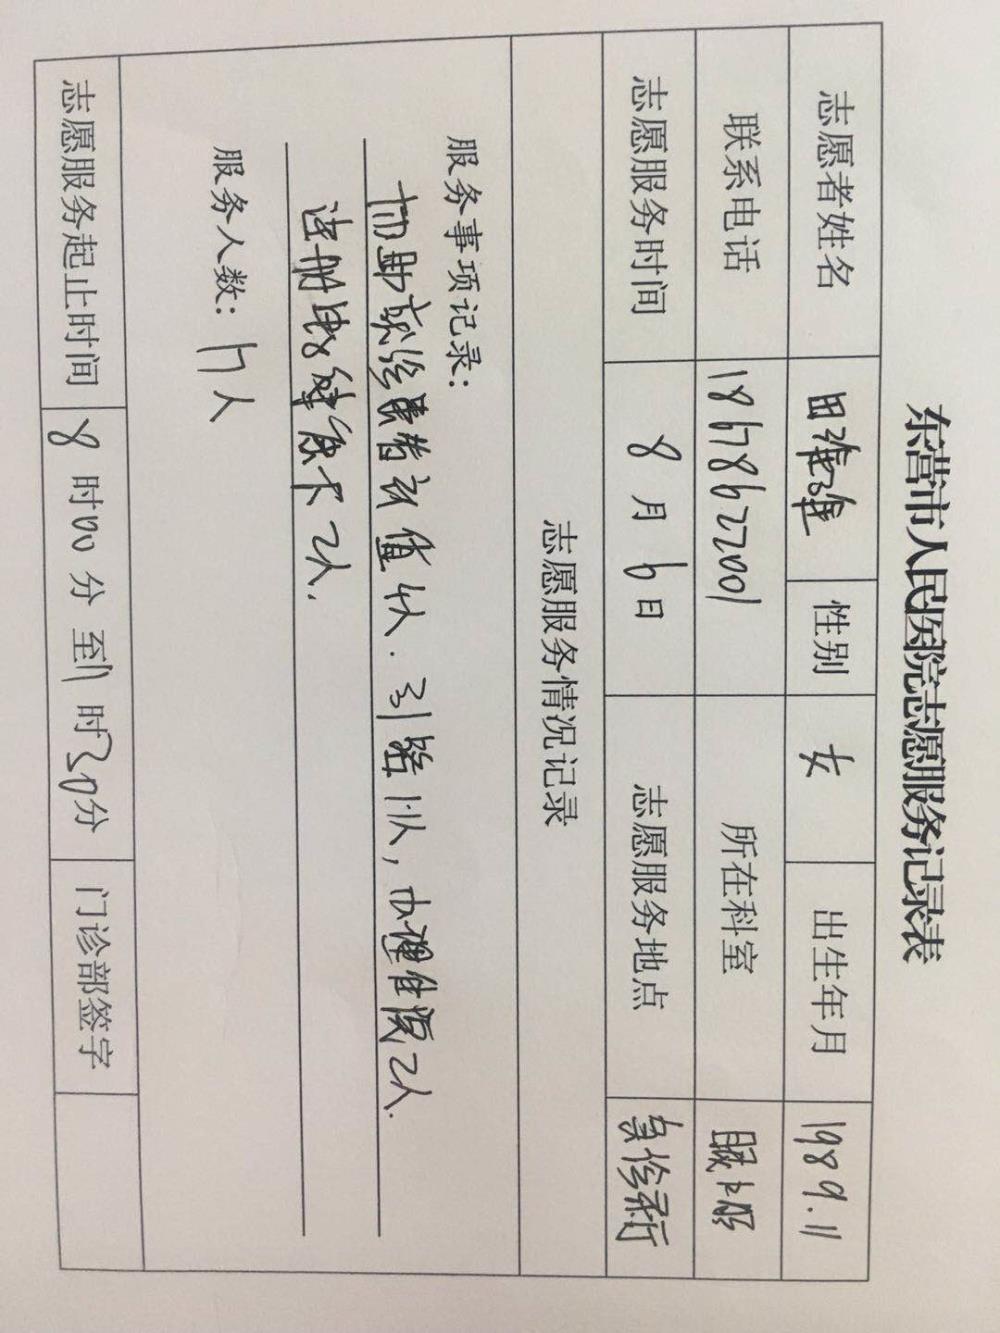 东营市人民医院志愿服务记录表
志愿者姓名 田 性别 女 出生年月 1989.11
联系电话 18678622001 所在科室 眼
志愿服务时间 8月6日 志愿服务地点 急诊
志愿服务情况记录
服务事项记录:
协助就诊患者 4人. 引路 1人, 办理住院2人.
注册健康卡2人.
服务人数: 人
志愿服务起止时间 8时00分至11时30分 门诊部签字